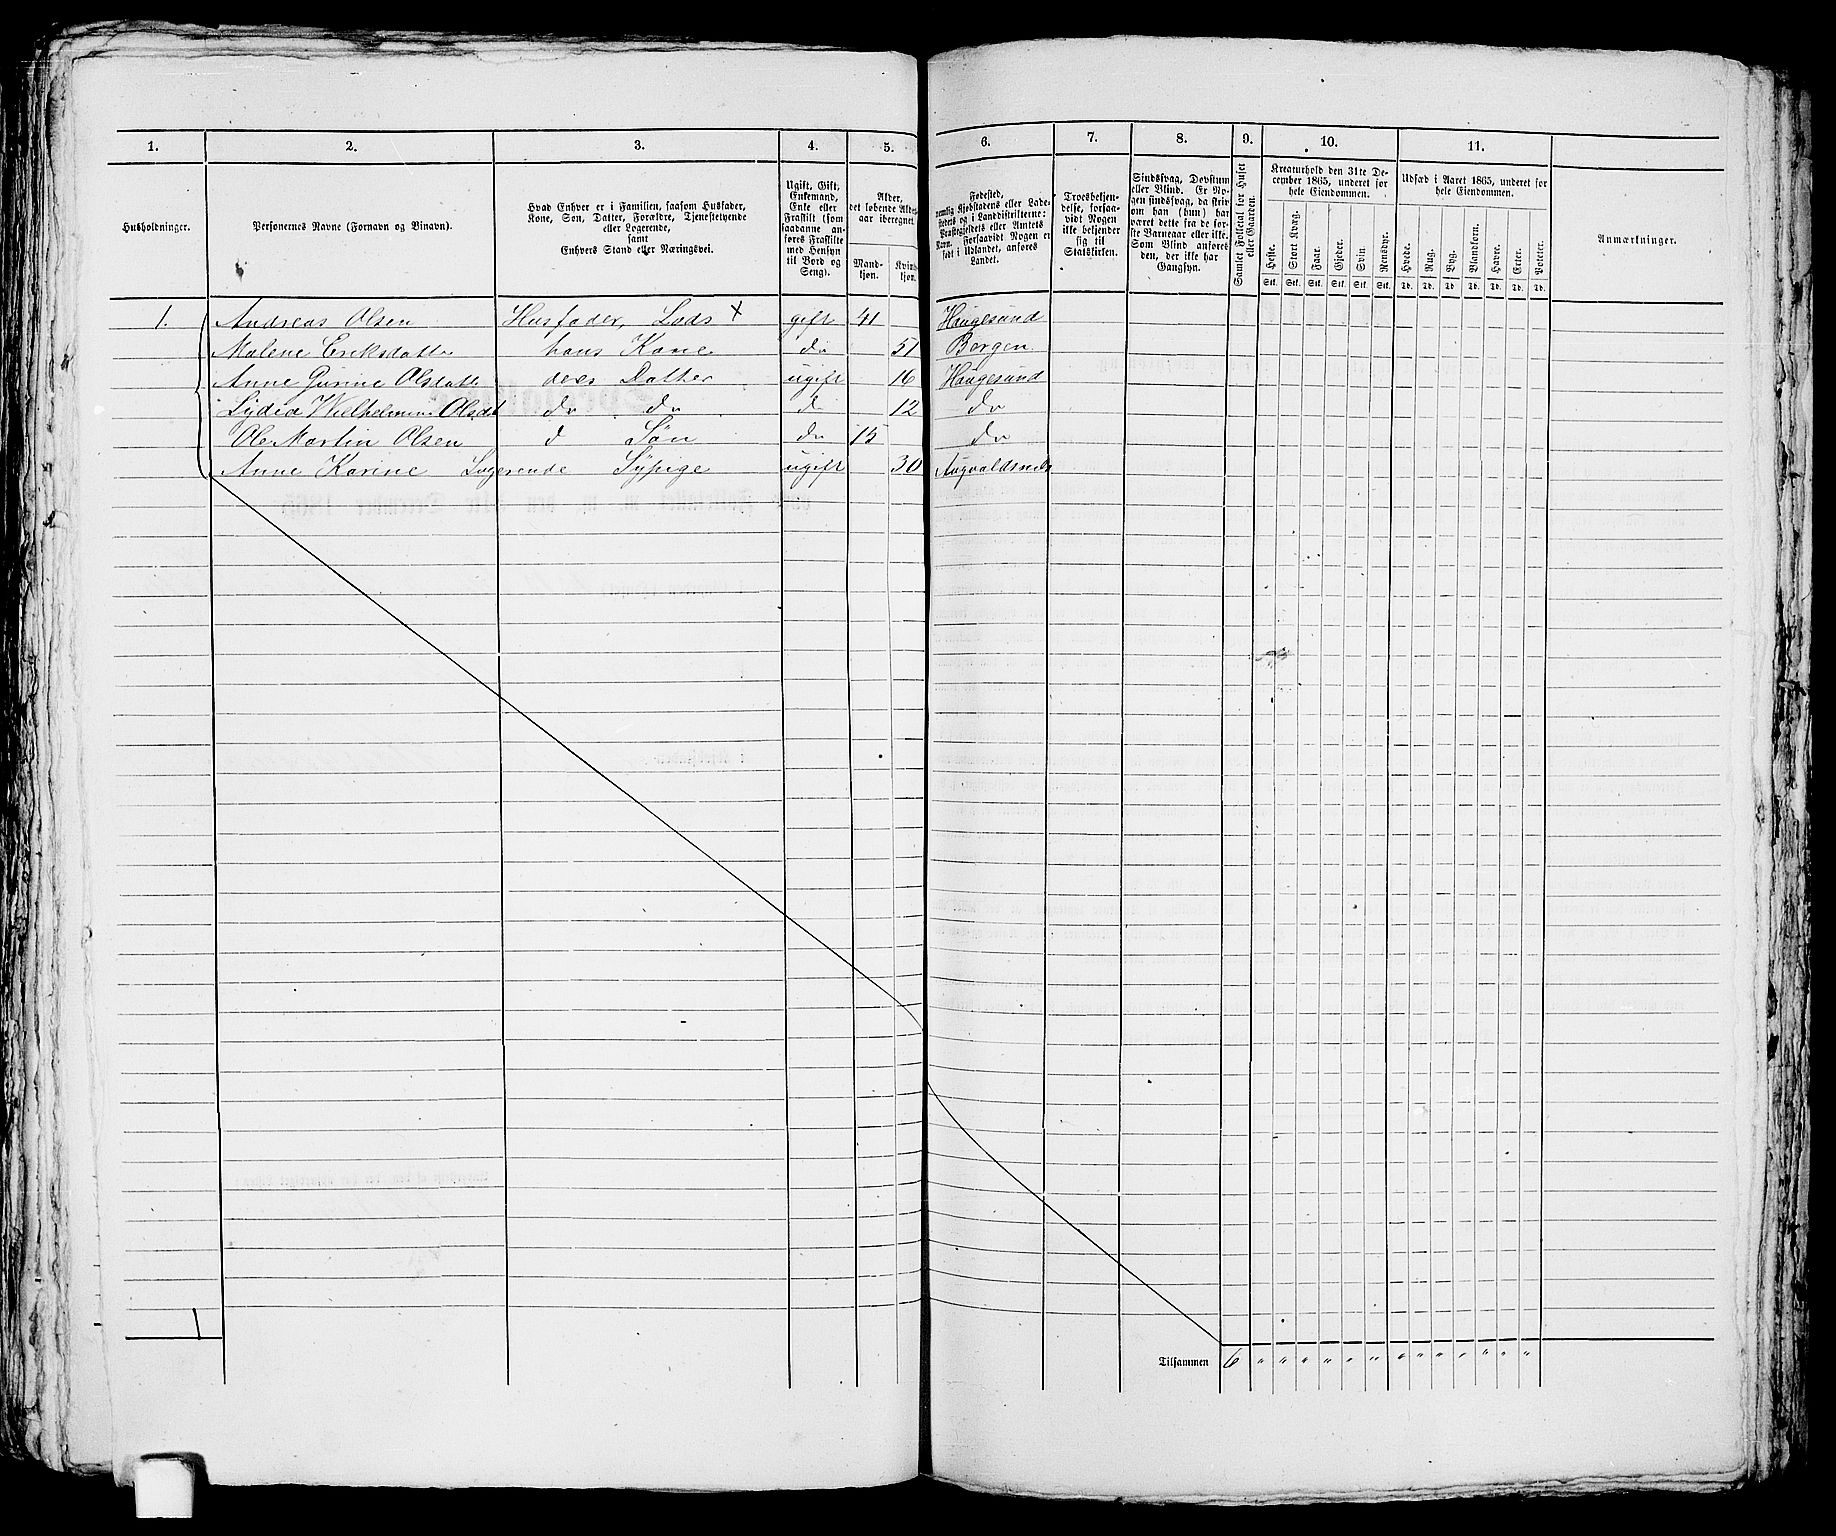 1. 2. 3. 4. 5. 6. 7. 8. 9. 10. 11.
Husholdninger.
Personernes Navne (Fornavn og Binavn).
Hvad Enhver er i Familien, saasom Husfader,
Kone, Søn, Datter, Forældre, Tjenestetyende
eller Logerende,
samt
Enhvers Stand eller Næringsvei.
Ugift, Gift,
Enkemand,
Enke eller
Fraskilt (som
saadanne an-
føres Fraskilte
med Hensyn
til Bord og
Seng).
Alder,
det løbende Alders-
aar iberegnet.
Mand-
kjøn.
Kvinde-
kjøn.
Fødested,
nemlig Kjøbstadens eller Lade-
stedets og i Landdistrikterne:
Præstegjeldets eller Annexets
Navn. Forsaavidt Nogen er
født i Udlandet, anføres
Landet.
Troesbekjen-
delse, forsaa-
vidt Nogen
ikke bekjender
sig til
Statskirken.
Sindssvag, Døvstum
eller Blind. Er No-
gen sindssvag, da skriv
om han (hun) har
været dette fra de før-
ste Barneaar eller ikke.
Som Blind anføres
den, der ikke har
Gangsyn.
Samlet Folketal for Huset
eller Gaarden.
Kreaturhold den 31te De-
cember 1865, underet for
hele Eiendommen.
Heste. Stort Kvæg. Faar. Gjeder. Svin. Rensdyr.
Stk. Stk. Stk. Stk. Stk. Stk.
Udsæd i Aaret 1865, underet for
hele Eiendommen.
Hvede. Rug. Byg. Blandkorn. Havre. Erter. Poteter.
Td. Td. Td. Td. Td. Td. Td.
Anmærkninger.
1. Andreas Olsen Husfader, Lods x gift 41 Haugesund
Malene Eriksdatter hans Kone do 51 Bergen
Anne Gurine Olsdatt deres Datter ugift 16 Haugesund
Lydia Wilhelmine Olsdat do do d 12 do
Ole Martin Olsen d Søn do 15 do
Anne Karine Logerende Sypige ugift 30 Augvaldsnæs
1
Tilsammen 6 " " " " " " " " " " " " "